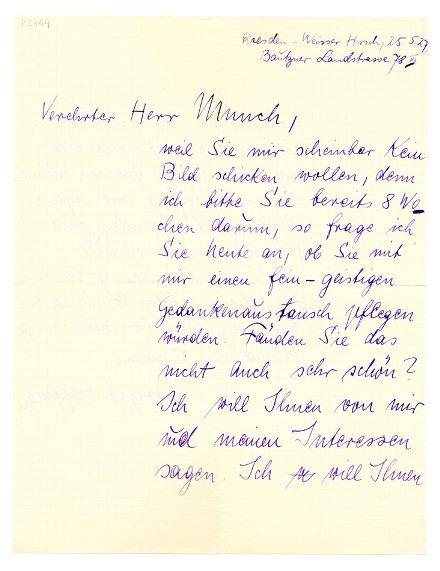 K2464
Dresden - Weisser Hirsch, 25.5.27
Bautzner Landstrasse 78 II
Verehrter Herr Munch,
weil Sie mir scheinbar kein
Bild schicken wollen, denn
ich bitte Sie bereits 8 Wo
chen darum, so frage ich
Sie heute an, ob Sie mit
mir einen fein-geistigen
Gedankenaustausch pflegen
würden. Fänden Sie das
nicht auch sehr schön?
Ich will Ihnen von mir
und meinen Interessen
sagen. Ich will Ihnen